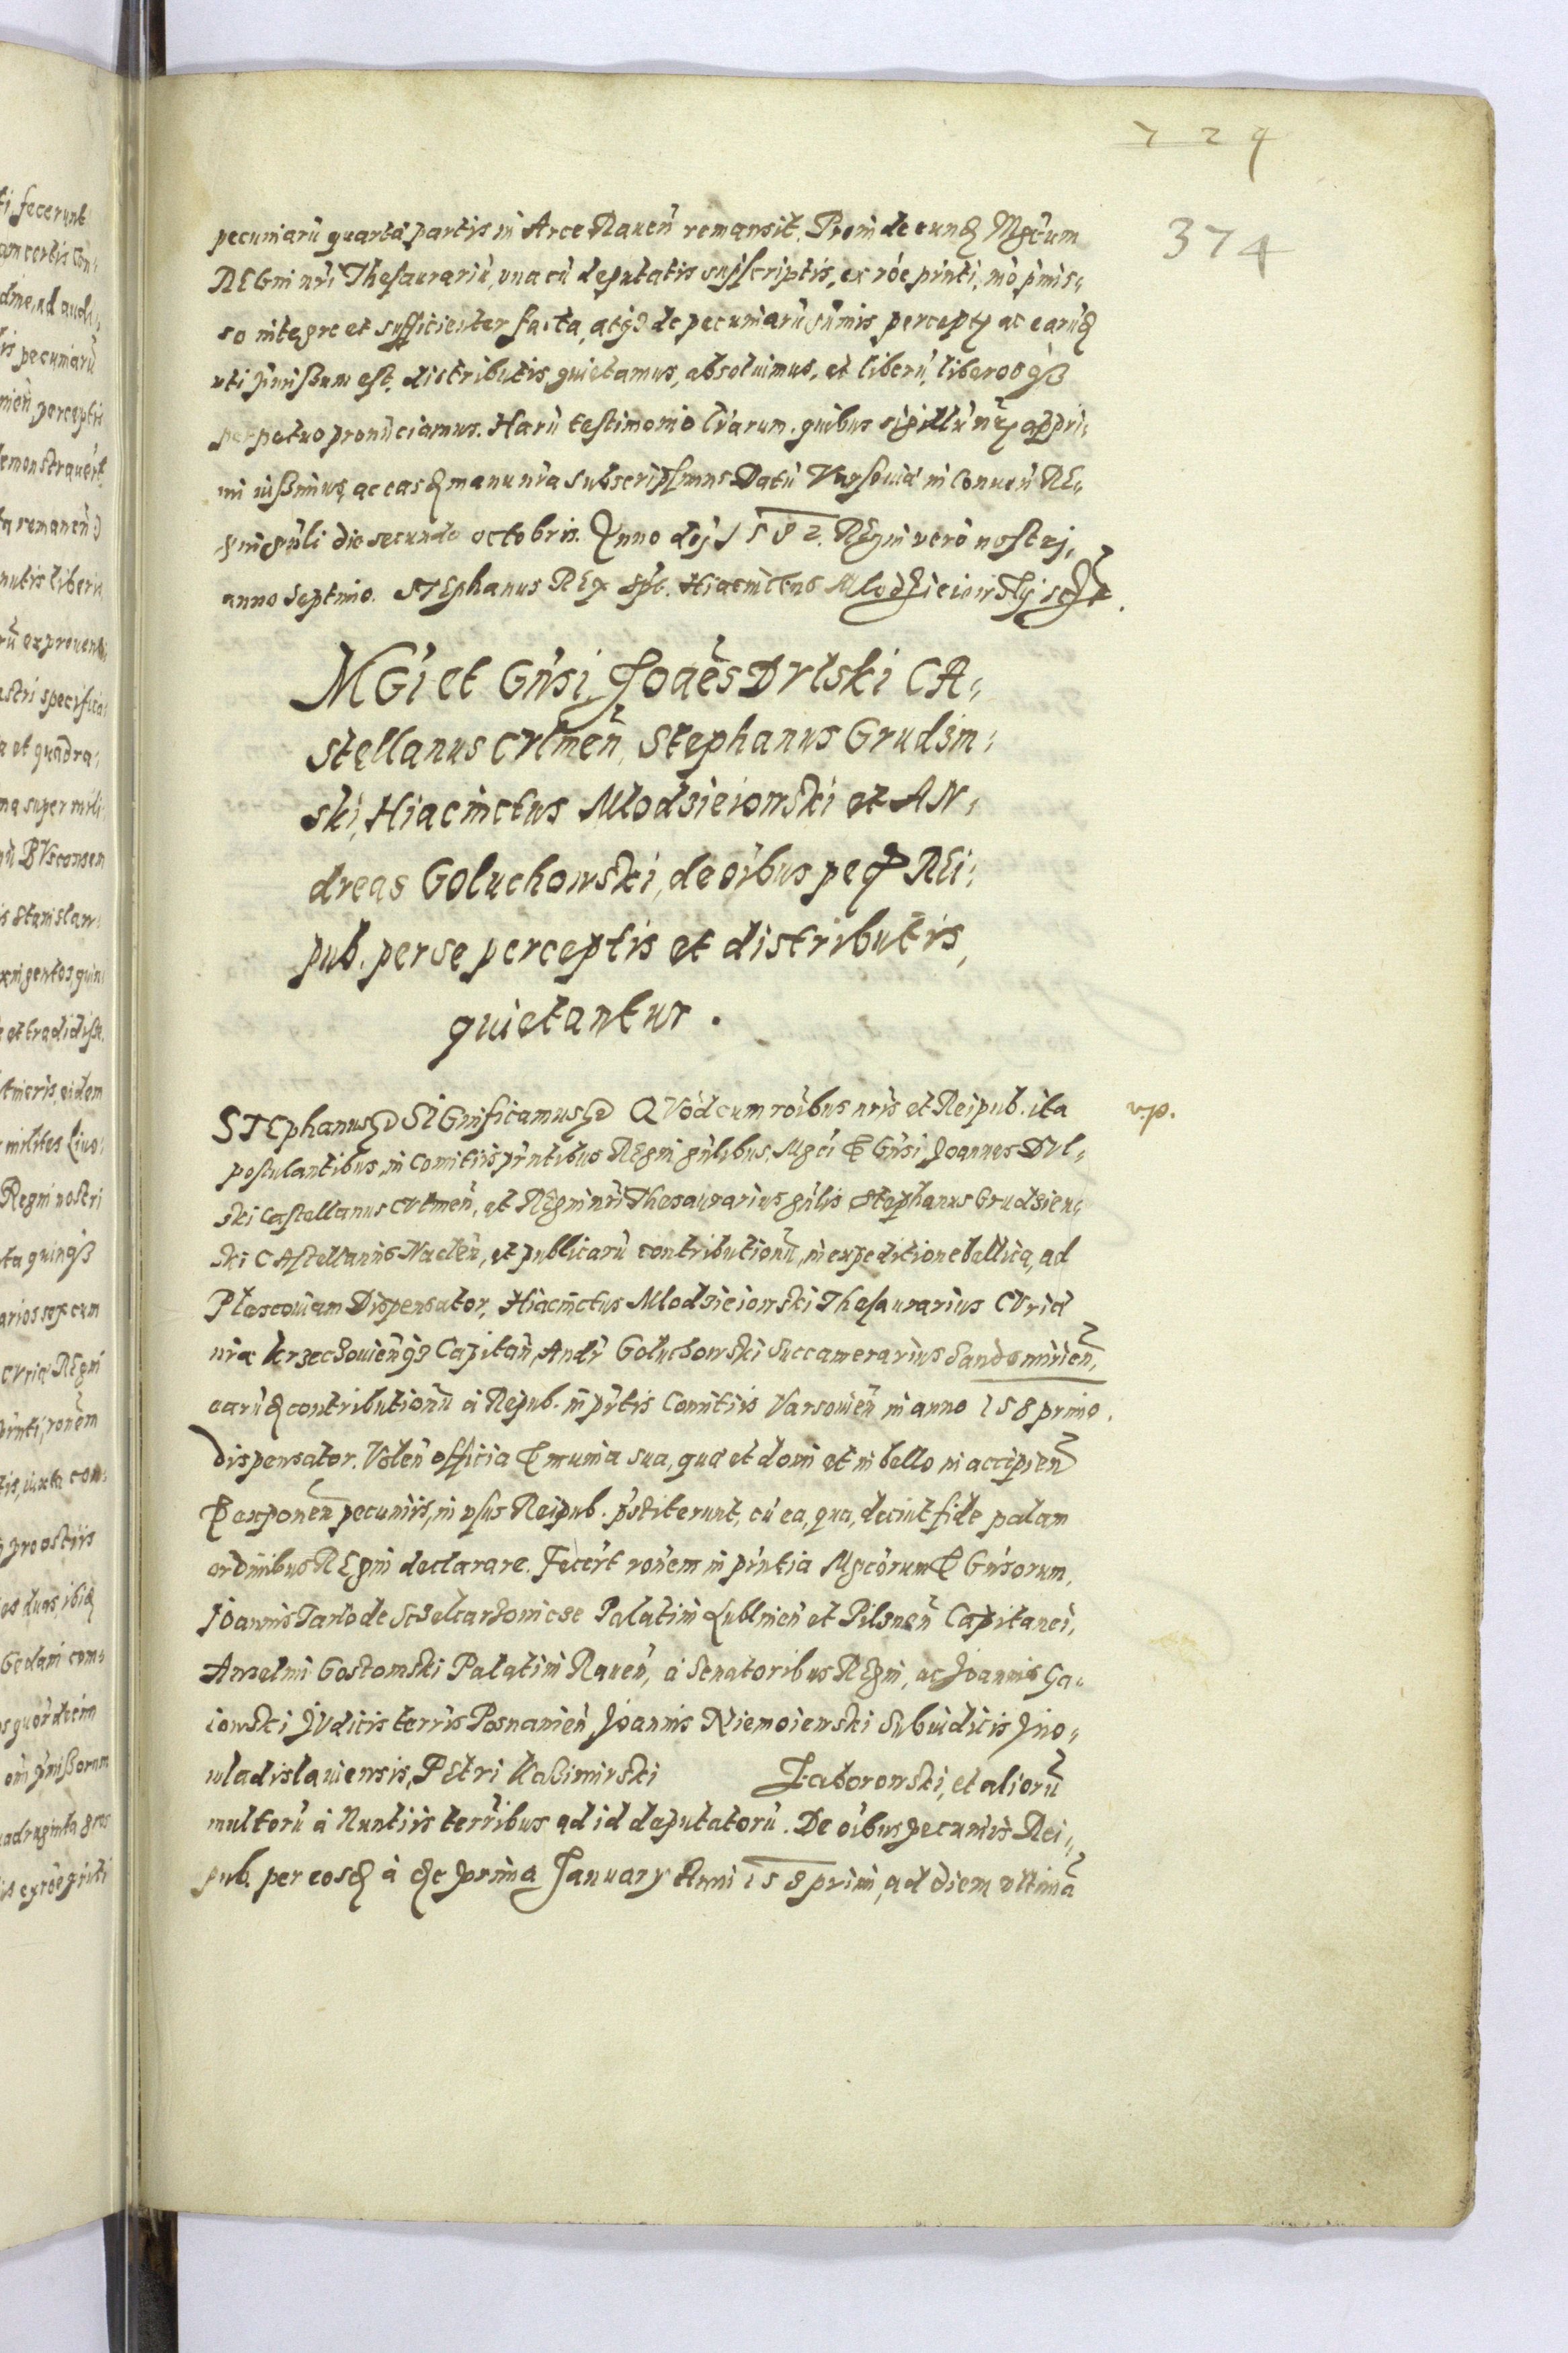 7 2 9
374
pecuniarũ quartæ partis in Arce Raueñ remansit. Proinde eundẽ Mgcũm
REGni nr̃i Thesaurariũ, una cũ deputatis supscriptis, ex rõe pr̃nti, mõ p̃mis,
so integre et sufficienter facta, atq3 de pecuniarũ sũmis percept; ac earũdẽ
uti p̃missum est, distributis, quietamus, absoluimus, et liberũ, liberosq3
perpetuo pronũciamus. Harũ testimonio lr̃arum. quibus sigillũ nr̃; appri,
mi iussimus, ac easdẽ manu nr̃a subscripsimus Datũ Varsouiæ in Conueñ RE,
gni gñli die secunda octobris. Anno dñj 1582. Regni verò nostrj,
anno septimo. STEphanus REx spt. Hiacinctus Mlodzieiowskj sczt.
MGci et Gñsi Joañes DVlski CA,
stellanus CVlmeñ, Stephanus Grudsin,
ski, Hiacinctus Mlodsieiowski et AN,
dreas Goluchowski, de oĩbus peč REi,
pub. per se perceptis et distributis,
quietantur.
STEphanus SIGnificamus QVòd cum rõibus nr̃is et Reipub. ita
postulantibus, in Comitiis pr̃ntibus REgni gñlibus, Mgci & Gñsi Joannes DVl,
ski Castellanus CVlmeñ, et REgni nr̃i Thesaurarius gñlis Stephanus Grudsien,
ski CAstellanus Nacleñ, et publicarũ contributionũ, in expeditione bellica, ad
Plescouiam Dispensator, Hiacinctus Mlodsieiowski Thesaurarius CVriæ
nr̃æ krzeczouieñq3 Capitañ, Andr̃ Goluchowski Succamerarius Sandomirieñ,
earũdẽ contributionũ à Repub. in pr̃tis Comitiis Varsouieñ in anno 158 primo.
dispensator. Voleñ officia & munia sua, quæ et domi et in bello in accipieñ
& exponeñ pecuniis, in vsus Reipub. p̃stiterunt, cũ ea, qua, decuit fide palam
ordinibus REgni declarare. Fecer̃t roñem in pr̃ntia Mgcõrum & Gñsorum,
Joannis Tarlo de Sczelcarzowicze Palatini Lublineñ et Pilsneñ Capitanei,
Anselmi Gostomski Palatini Raueñ, à Senatoribus REgni, ac Joannis Ga,
iowski JVdicis terr̃is Posnanieñ, Joannis Niemoiewski Subiudicis Jno,
uladislauiensis, PEtri kazimirski Jaborowski, et aliorũ
multorũ à Nuntiis terr̃ibus ad id deputatorũ. De oĩbus pecuniis Rei,
pub. per eosdẽ à die prima January Anni 158 primi, ad diem vltimã
v.p.